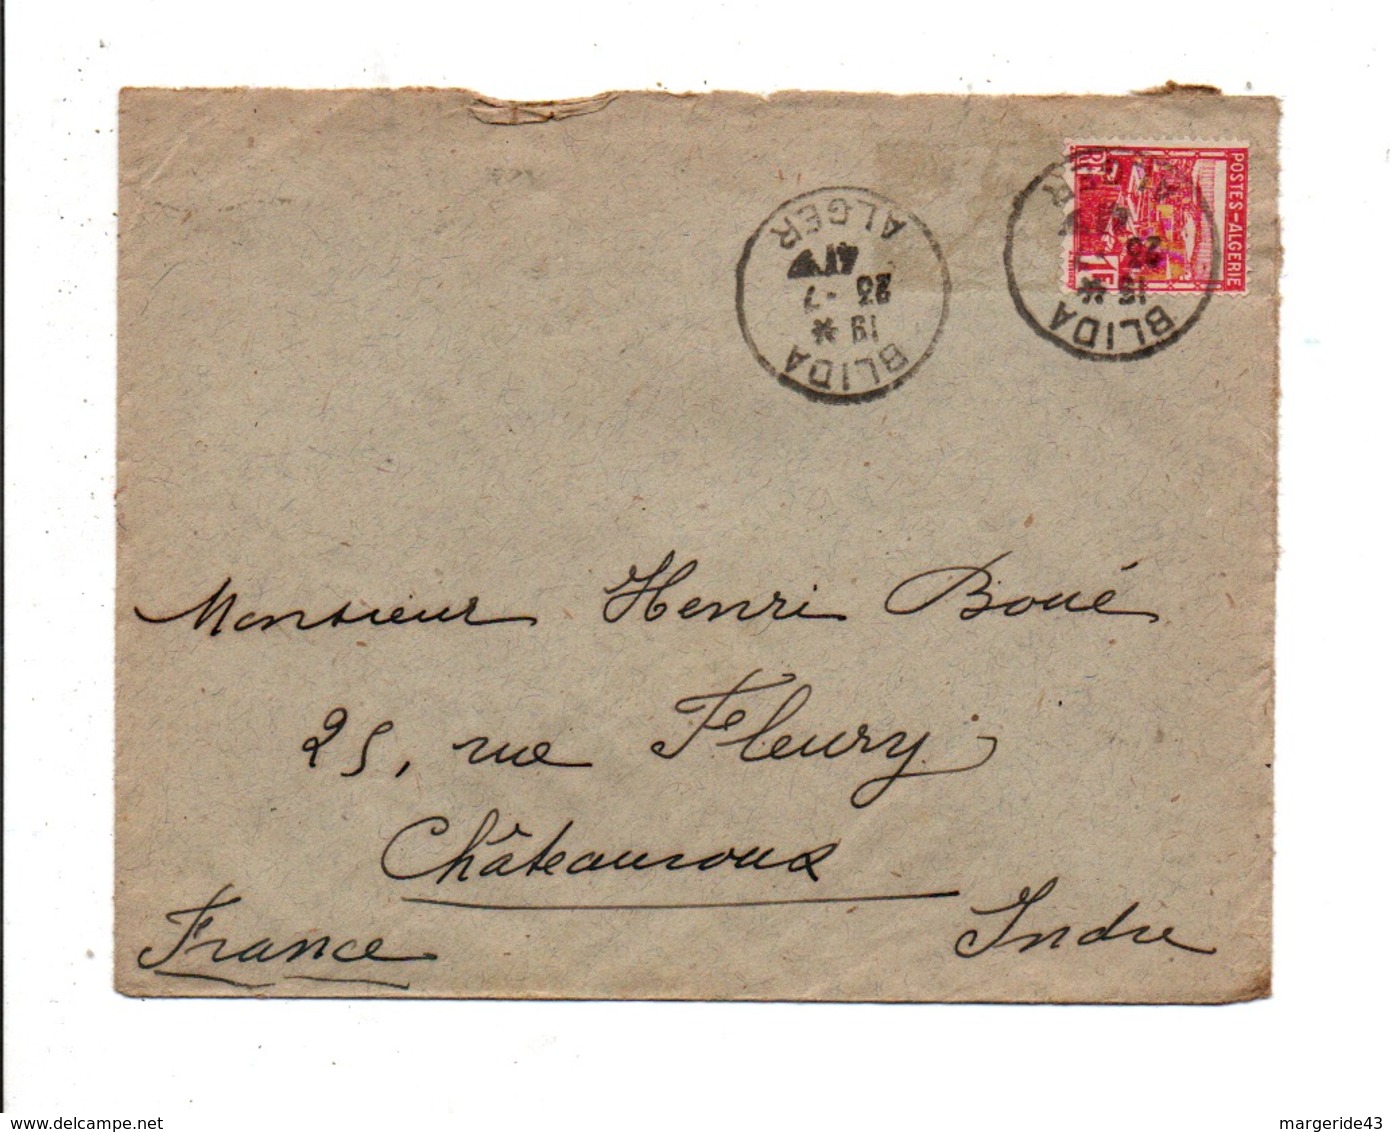 POSTES-ALGERIE
RF
1F
BLIDA
ALGER
19 *
23 -7
41
BLIDA
ALGER
15 *
23
Monsieur Henri Boué
25, rue Fleury
Châteauroux
France Indre
www.delcampe.net
margeride43